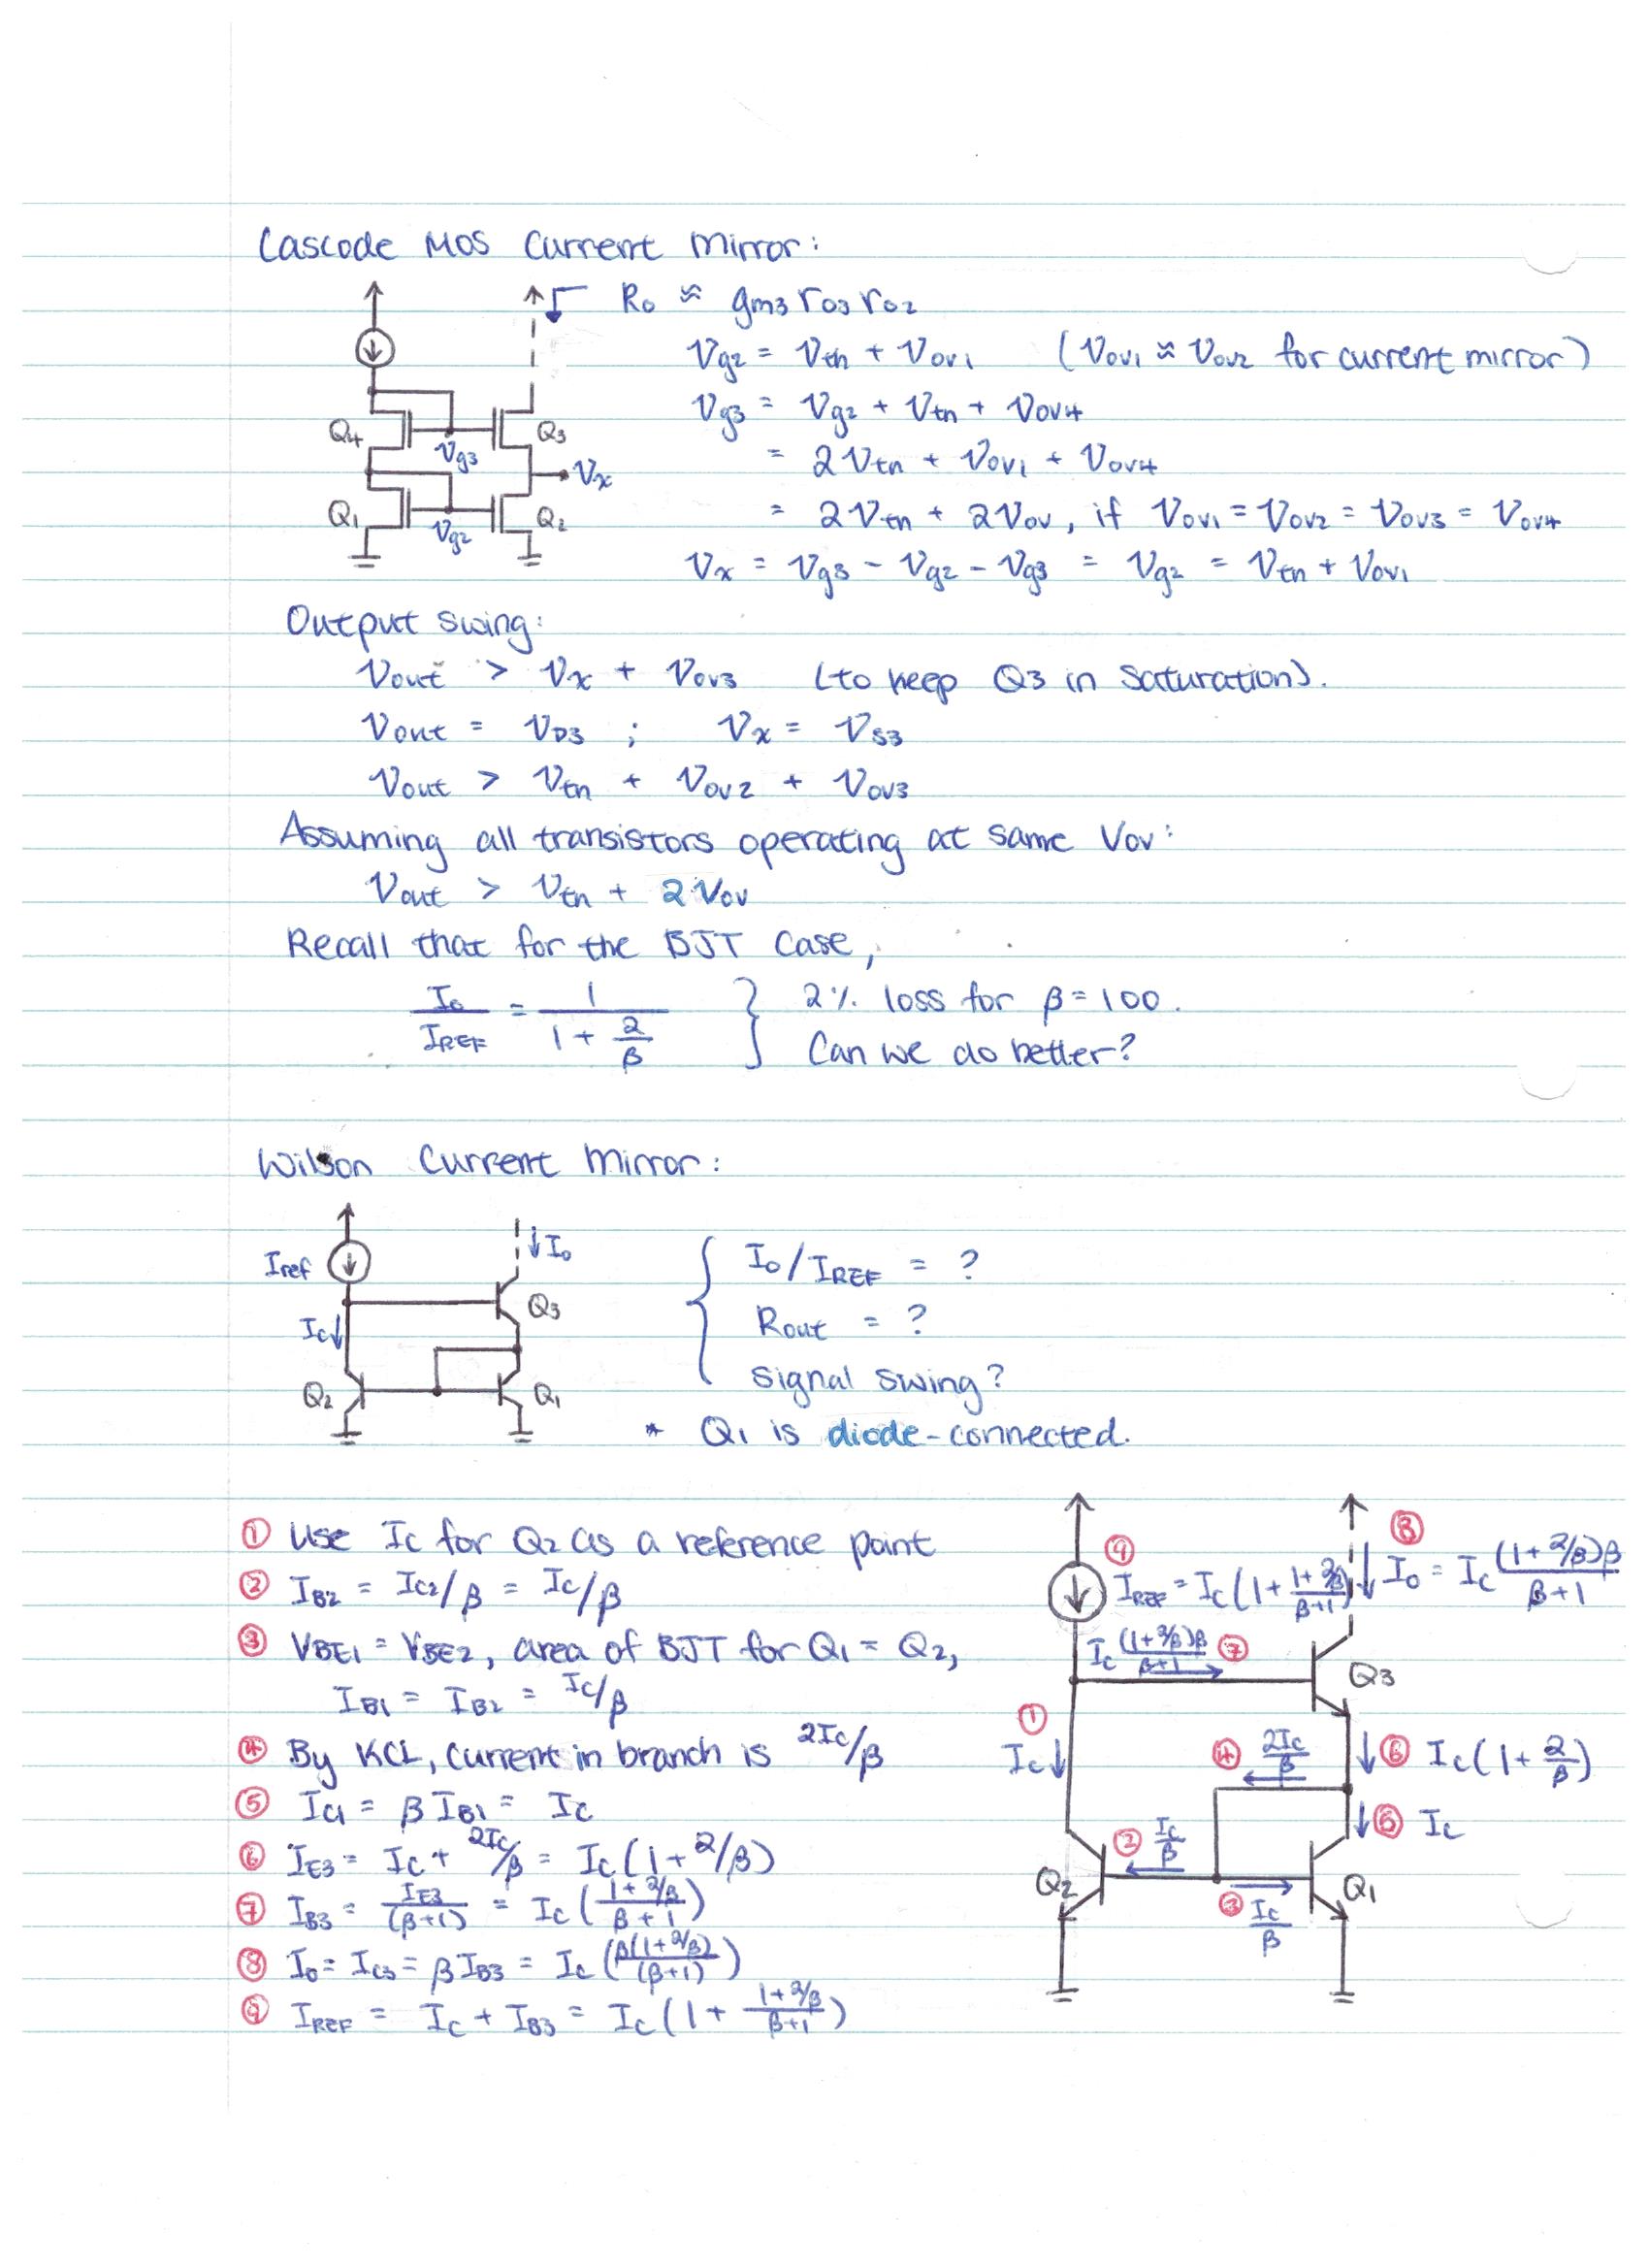 Cascode MOS Current Mirror:
Ro ≈ gm3 ro3 ro2
Vg2 = Vtn + Vov1 (Vov1 ≈ Vov2 for current mirror)
Vg3 = Vg2 + Vtn + Vov4
= 2Vtn + Vov1 + Vov4
= 2Vtn + 2Vov, if Vov1 = Vov2 = Vov3 = Vov4
Vx = Vg3 - Vg2 - Vg3 = Vg2 = Vtn + Vov1
Q4
Vg3
Q3
Vx
Q1
Vg2
Q2
Output swing:
Vout > Vx + Vov3 (to keep Q3 in saturation).
Vout = VD3 ; Vx = VS3
Vout > Vtn + Vov2 + Vov3
Assuming all transistors operating at same Vov:
Vout > Vtn + 2Vov
Recall that for the BJT case,
Io/IREF = 1/(1 + 2/β) } 2% loss for β = 100.
Can we do better?
Wilson Current Mirror:
Iref
Io
Q3
Ic
Q2
Q1
Io/IREF = ?
Rout = ?
Signal Swing?
* Q1 is diode-connected.
① Use Ic for Q2 as a reference point
② IB2 = IC2/β = IC/β
③ VBE1 = VBE2, area of BJT for Q1 = Q2,
IB1 = IB2 = IC/β
④ By KCL, current in branch is 2Ic/β
⑤ IC1 = β IB1 = IC
⑥ IE3 = IC + 2IC/β = IC(1 + 2/β)
⑦ IB3 = IE3/(β+1) = IC((1 + 2/β)/(β + 1))
⑧ Io = IC3 = β IB3 = IC(β(1 + 2/β)/(β+1))
⑨ IREF = IC + IB3 = IC(1 + (1 + 2/β)/(β+1))
⑧ Io = IC (1 + 2/β)β/(β+1)
⑨ IREF = IC(1 + (1 + 2/β)/(β+1))
IC (1 + 2/β)β/(β+1) ⑦
Q3
① Ic
④ 2Ic/β
⑥ Ic(1 + 2/β)
⑤ Ic
② Ic/β
Q2
③ Ic/β
Q1